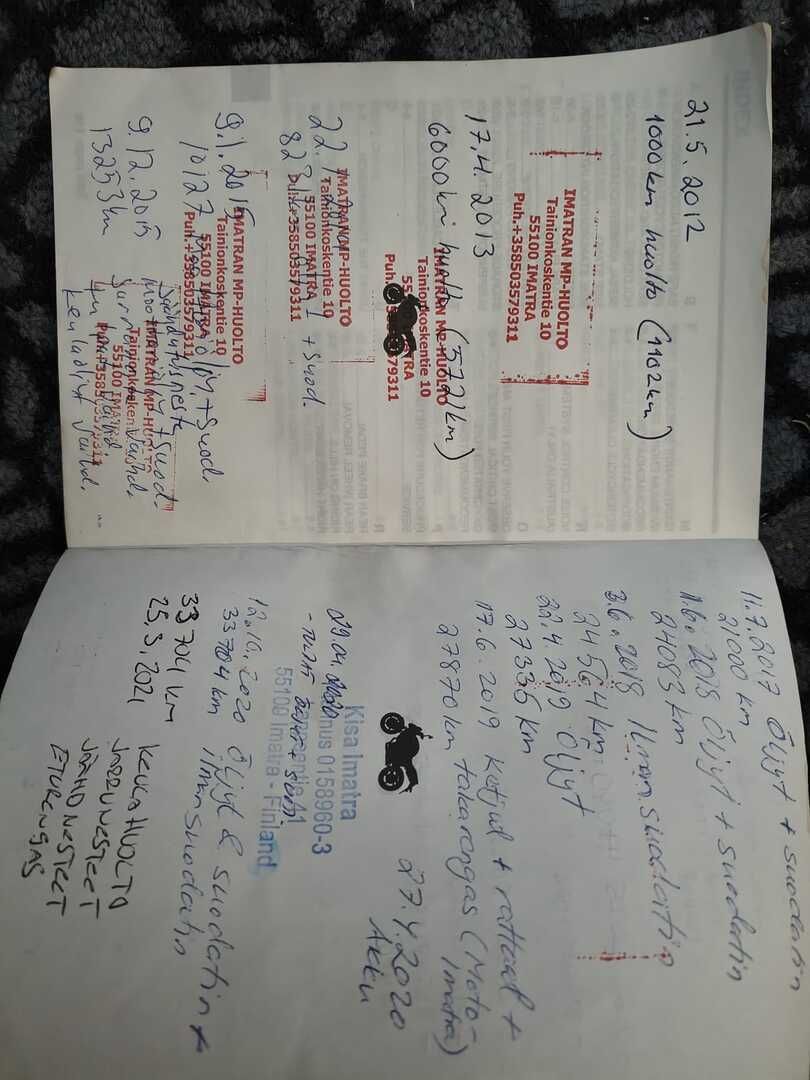 21.5.2012
1000 km huolto (1102km)
IMATRAN MP-HUOLTO
Tainionkoskentie 10
55100 IMATRA
Puh.+358503579311
17.4.2013
6000km huolto (5721km)
IMATRAN MP-HUOLTO
Tainionkoskentie 10
Puh.
79311
IMATRAN MP-HUOLTO
Tainionkoskentie 10
55100 IMATRA
Puh.+358503579311
+ suod.
9.1.2015
10127
öljy + suod.
Jäähdytysneste
IMATRAN MP-HUOLTO
Tainionkoskentie 10
55100 IMATRA
Puh.+358503579311
9.12.2015
13253km
+ suod.
vaihd.
vaihd.
IMATRAN MP-HUOLTO
55100 IMATRA
Puh.+358503579311
11.7.2017 Öljyt + suodatin
21000 km
11.6.2018 Öljyt + suodatin
24083 km
3.6.2018 Ilmansuodatin
24564 km
22.4.2019 Öljyt
27335 km
17.6.2019 ketjut + rattaat +
27870km takarengas (Moto-
Imatra)
27.4.2020
Akku
29.04.2020
Kisa Imatra
0158960-3
55100 Imatra - Finland
12.10.2020 Öljyt & suodatin +
33704 km ilmansuodatin
33 704 km
25.3.2021
KEULAHUOLTO
JARRUNESTEET
JÄÄHDNESTEET
ETURENGAS